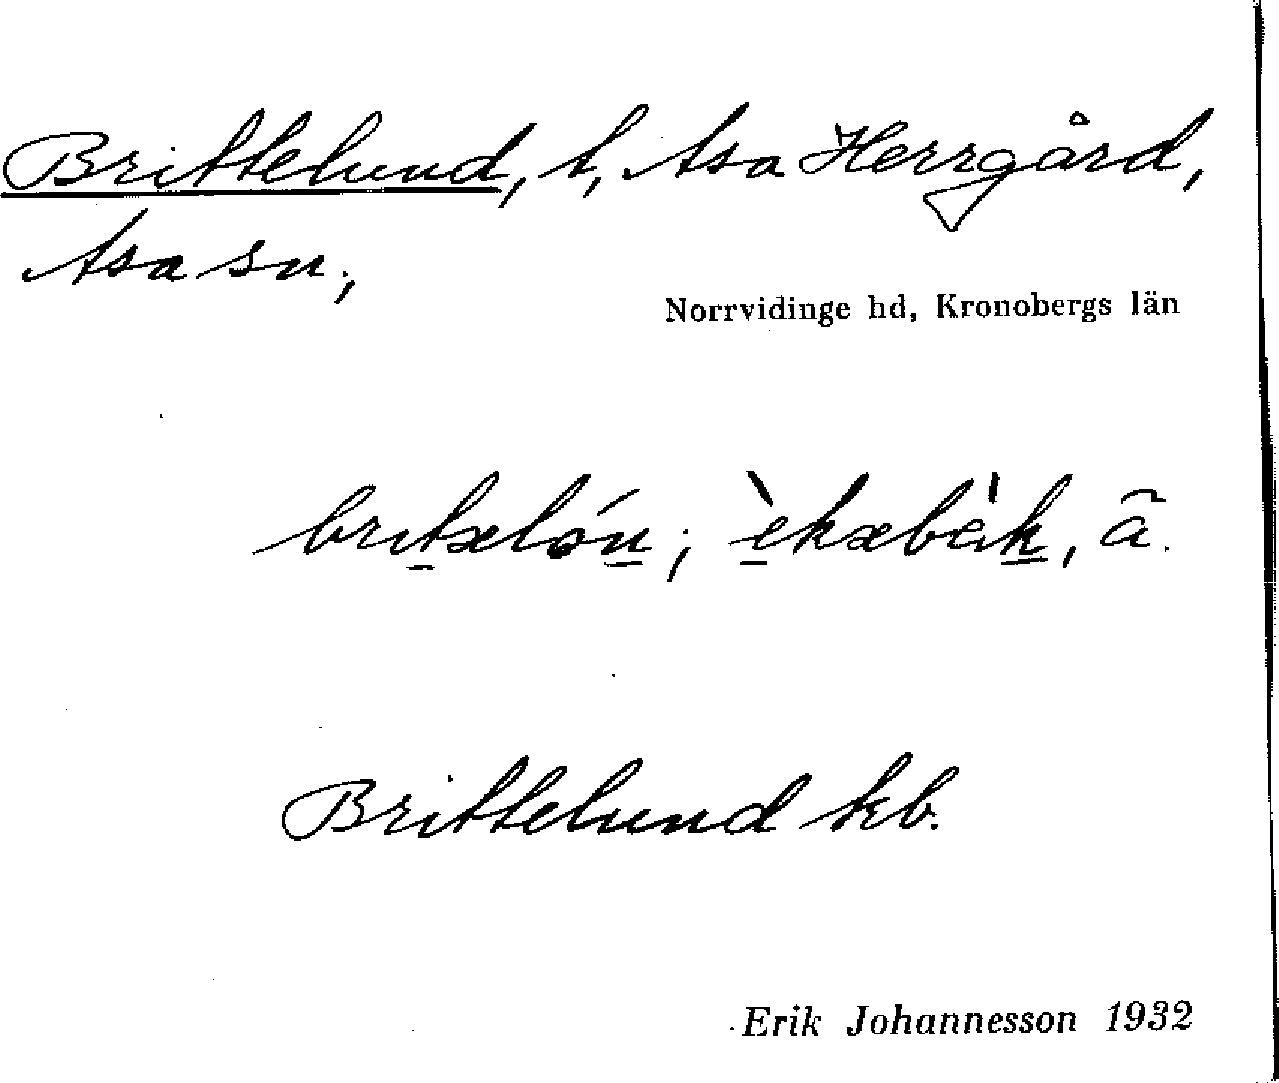 Brittelund, t, Asa Herrgård,
Asa sn;
Norrvidinge hd, Kronobergs län
britælón; èkæbàk, ã.
Brittelund kb.
Erik Johannesson 1932